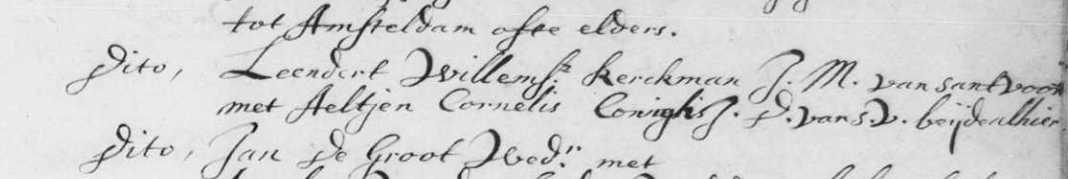 tot Amsteldam ofte elders.
Dito, Leendert Willemsz. Kerckman J. M. van santvoort
met Aeltjen Cornelis Conighs J. D. van S. V. beijde alhier.
Dito, Jan De Groot Wedr. met